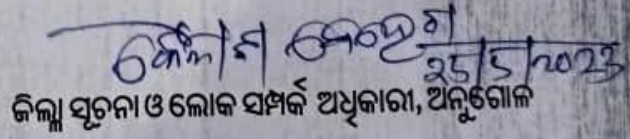 କୈଳାଶ ବେହେରା
25/5/2023
ଜିଲ୍ଲା ସୂଚନା ଓ ଲୋକ ସମ୍ପର୍କ ଅଧିକାରୀ, ଅନୁଗୋଳ